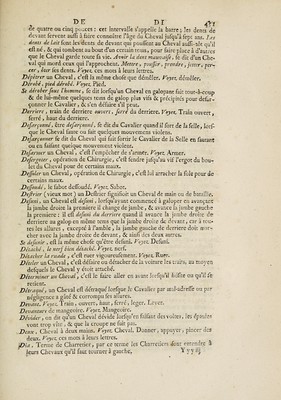 DE DI 477
de quatre ou cinq pouces : cet intervalle s'appelle la barre ; les dents de
devant servent aussi à faire connoître l'âge du Cheval jusqu'à sept ans. Les
dents de lait sont les dents de devant qui poussent au Cheval aussi-tôt qu'il
est né, & qui tombent au bout d'un certain tems, pour faire place à d'autres
que le Cheval garde toute sa vie. Avoir la dent mauvaise, se dit d'un Che-
val qui mord ceux qui l'approchent. Mettre, pousser, prendre, jetter, per-
cer, leur les dents. Voyez ces mots à leurs lettres.
Dépêtrer un Cheval, c'est la même chose que démêler. Voyez. démêler.
Dérobé, pied dérobé. Voyez. Pied.
Se dérober sous l'homme, se dit lorsqu'un Cheval en galopant fait tout-à-coup
& de lui-même quelques tems de galop plus vîts & précipités pour desar-
çonner le Cavalier, & s'en défaire s'il peut.
Derriere, train de derriere ouvert, serré du derriere. Voyez. Train ouvert,
serré, haut du derriere.
Desarçonné, être desarçonné, se dit du Cavalier quand il sort de la selle, lors-
que le Cheval saute ou fait quelques mouvement violent.
Desarçonner se dit du Cheval qui fait sortir le Cavalier de la Selle en sautant
ou en faisant quelque mouvement violent.
Desarmer un Cheval, c'est l'empêcher de s'armer. Voyez. Armer.
Desergoter, opération de Chirurgie, c'est fendre jusqu'au vif l'ergot du bou-
let du Cheval pour de certains maux.
Dessoler un Cheval, opération de Chirurgie, c'est lui arracher la sole pour de
certains maux.
Dessoudé, le sabot dessoudé. Voyez. Sabot.
Destrier (vieux mot) un Destrier signifioit un Cheval de main ou de bataille.
Desuni, un Cheval est desuni, lorsqu'ayant commencé à galoper en avançant
la jambe droite la premiere il change de jambe, & avance la jambe gauche
la premiere : il est desuni du derriere quand il avance la jambe droite de
derriere au galop en même tems que la jambe droite de devant, car à tou-
tes les allures, excepté à l'amble, la jambe gauche de derriere doit mar-
cher avec la jambe droite de devant, & ainsi des deux autres.
Se desunir, est la même chose qu'être desuni. Voyez. Desuni.
Détaché, le nerf bien détaché. Voyez. nerf.
Détacher la ruade, c'est ruer vigoureusement. Voyez. Ruer.
Dételer un Cheval, c'est défaire ou détacher de la voiture les traits, au moyen
desquels le Cheval y étoit attaché.
Déterminer un Cheval, c'est le faire aller en avant lorsqu'il hésite ou qu'il se
retient.
Détraqué, un Cheval est détraqué lorsque le Cavalier par mal-adresse ou par
négligence a gâté & corrompu ses allures.
Devant. Voyez. Train, ouvert, haut, serré, leger, Lever.
Devanture de mangeoire. Voyez. Mangeoire.
Dévider, on dit qu'un Cheval dévide lorsqu'en faisant des voltes, les épaules
vont trop vîte, & que la croupe ne suit pas.
Deux, Cheval à deux mains. Voyez. Cheval. Donner, appuyer, pincer des
deux. Voyez. ces mots à leurs lettres.
Dia, Terme de Charretier, par ce terme les Charretiers font entendre à
leurs Chevaux qu'il faut tourner à gauche,
Yyy iij